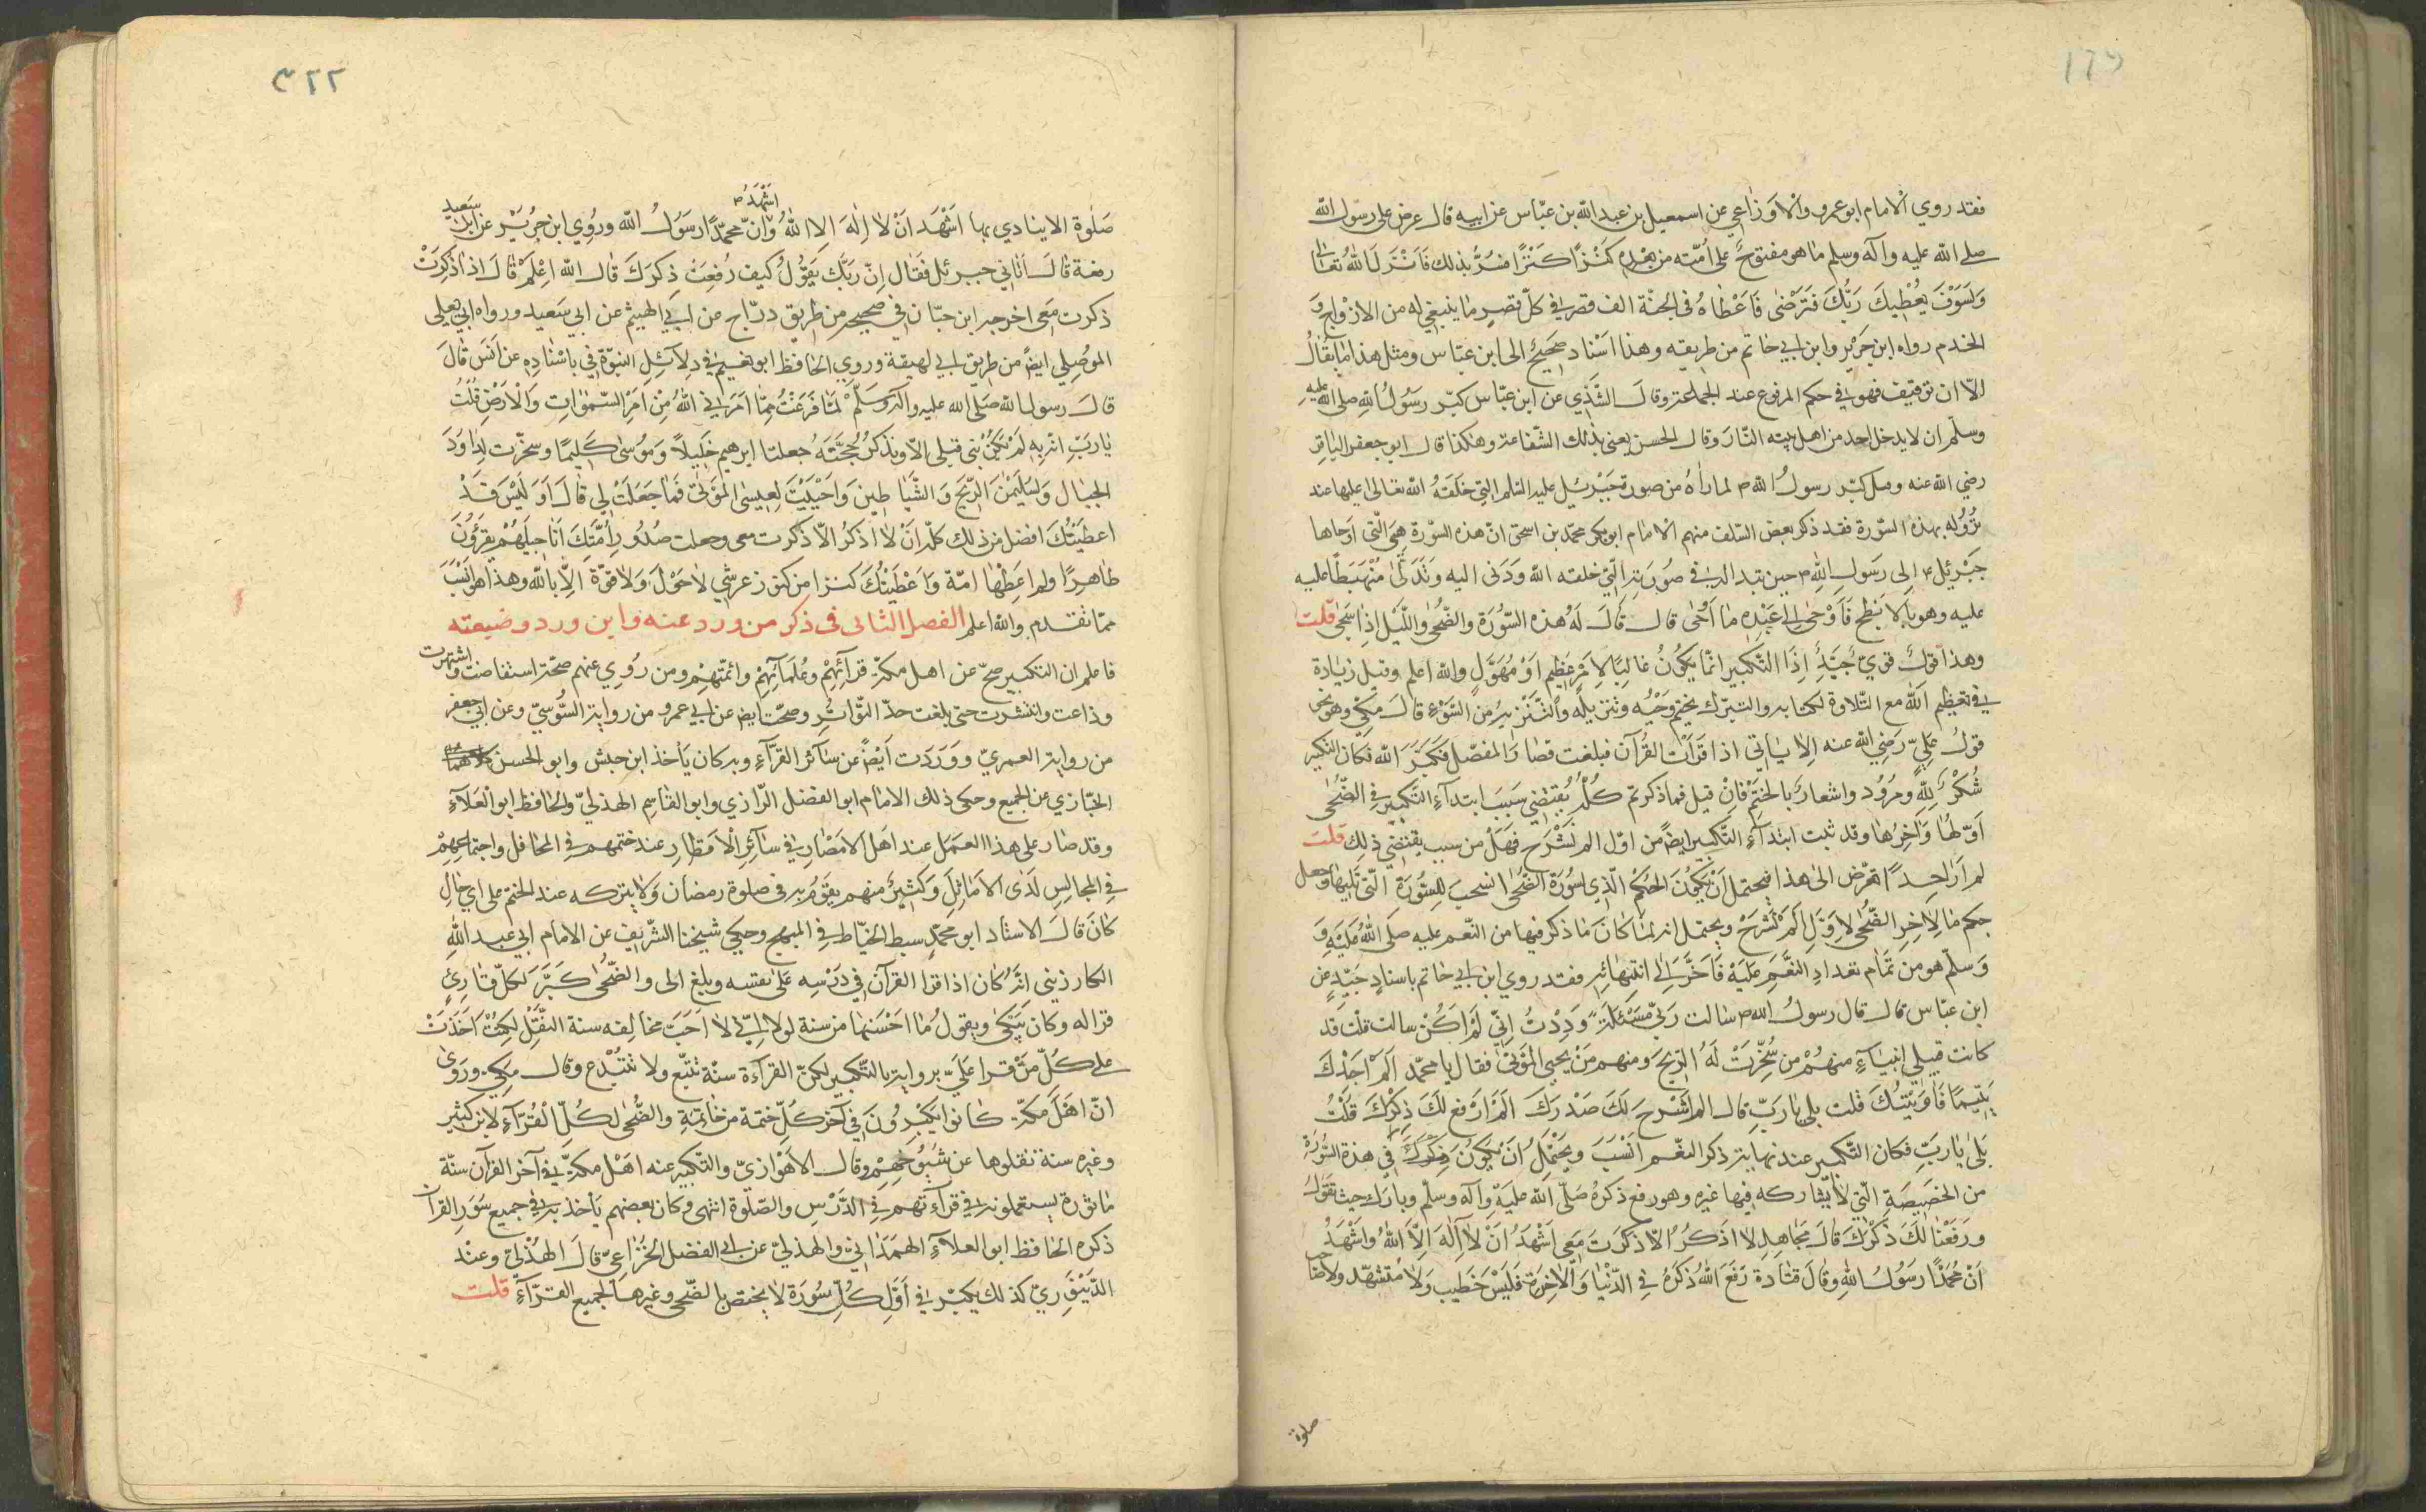 فقد روي الامام ابو عمرو والاوزاعي عن اسمعيل بن عبد الله بن عبّاس عن ابيه قال عرض على رسول الله
صلى الله عليه وآله وسلم ما هو مفتوح على امّته من بعده كنزًا كنزًا فسرّ بذلك فانزل الله تعالى
ولسوف يعطيك ربّك فترضى فاعطاه في الجنّة الف قصر في كلّ قصر ما ينبغي له من الازواج و
الخدم رواه ابن جرير وابن ابي حاتم من طريقه وهذا اسناد صحيح الى ابن عبّاس ومثل هذا ما يقال
الّا ان توقيف فهو في حكم المرفوع عند الجماعة وقال السّدي عن ابن عبّاس كبّر رسول الله صلى الله عليه
وسلّم ان لا يدخل احد من اهل بيته النّار وقال الحسن يعني بذلك الشّفاعة وهكذا قال ابو جعفر الباقر
رضي الله عنه وقيل كبّر رسول الله ص لما رآه من صورة جبرئيل عليه السّلم التي خلقه الله تعالى عليها عند
نزوله بهذه السّورة فقد ذكر بعض السّلف منهم الامام ابو بكر محمّد بن اسحق انّ هذه السّورة هي الّتي اوحاها
جبرئيل ع الى رسول الله ص حين تبدا له في صورته الّتي خلقه الله ودنى اليه وتدلّى منهبطًا عليه
عليه وهو بالابطح فاوحى الى عبده ما اوحى قال قال له هذه السّورة والضّحى واللّيل اذا سجى قلت
وهذا قول قويّ جيّد اذا التّكبير انّما يكون غالبًا لامر عظيم او مهوّل والله اعلم وقيل زيادة
في تعظيم الله مع التّلاوة لكتابه والتبرّك بختم وحيه وتنزيله والتّنزيه من السّوء قال مكّي وهو نحو
قول عليّ رضي الله عنه الا ياتي اذا قرات القرآن فبلغت قصار المفصّل فكبّر الله فكان التكبير
شكر لله وسرور واشعار بالختم فان قيل فما ذكرتم كلّه يقتضي سبب ابتداء التّكبير في الضّحى
اوّلها وآخرها وقد ثبت ابتداء التّكبير ايضًا من اوّل الم نشرح فهل من سبب يقتضي ذلك قلت
لم ار احدًا تعرّض الى هذا فيحتمل ان يكون الحكم الّذي لسورة الضّحى انسحب للسّورة الّتي تليها وجعل
حكم ما لآخر الضّحى لاوّل الم نشرح ويحتمل انه لمّا كان ما ذكر فيها من النّعم عليه صلى الله عليه و
وسلّم هو من تمام تعداد النّعم عليه فاخّر الى انتهائه فقد روي ابن ابي حاتم باسناد جيّد عن
ابن عبّاس قال قال رسول الله ص سالت ربّي مسئلة وددت انّي لم اكن سالت قلت قد
كانت قبلي انبياء منهم من سخّرت له الريح ومنهم من يحيى الموتى فقال يا محمّد الم اجدك
يتيمًا فاويتك قلت بلى يا ربّ قال الم اشرح لك صدرك الم ارفع لك ذكرك قلت
بلى يا ربّ فكان التّكبير عند نهاية ذكر النعم انسب ويحتمل ان يكون في هذه السّورة
من الخصيصة الّتي لا يشاركه فيها غيره وهو رفع ذكره صلّى الله عليه وآله وسلّم وبارك حيث تقول
ورفعنا لك ذكرك قال مجاهد لا اذكر الّا ذكرت معي اشهد ان لا اله الّا الله واشهد
انّ محمّدًا رسول الله وقال قتادة رفع الله ذكره في الدّنيا والآخرة فليس خطيب ولا متشهّد ولا صاحب
صلوة
صلوة الا ينادي بها اشهد ان لا اله الا الله وانّ محمّدًا رسول الله وروي ابن جرير عن ابي سعيد
اشهد
رفعة قال اتاني جبرئيل فقال انّ ربّك يقول كيف رفعت ذكرك قال الله اعلم قال اذا ذكرت
ذكرت معي اخرجه ابن حبّان في صحيحه من طريق درّاج عن ابي الهيثم عن ابي سعيد ورواه ابي يعلى
الموصلي ايضًا من طريق ابي لهيقة وروي الحافظ ابو نعيم في دلائل النبوّة في باسناده عن انس قال
قال رسول الله صلى الله عليه وآله وسلّم لمّا فرغت ممّا امرني الله من امر السّموات والارض قلت
يا ربّ انّه لم يكن نبي قبلي الّا وتذكر حجّته جعلت ابرهيم خليلاً وموسى كليمًا وسخّرت لداود
الجبال ولسليمن الريح والشّياطين واحييت لعيسى الموتى فما جعلت لي قال او ليس قد
اعطيتك افضل من ذلك كلّه ان لا اذكر الّا ذكرت معي وجعلت صدور امّتك اناجيلهم يقرؤن
ظاهرًا ولم اعطها امّة واعطيتك كنزا من كنوز عرشي لا حول ولا قوّة الّا بالله وهذا هو انسب
ممّا تقدم والله اعلم الفصل الثانى فى ذكر من ورد عنه واين ورد وضيعته
فاعلم ان التكبير صحّ عن اهل مكّة قرائهم وعلمآئهم وائمّتهم ومن روي عنهم صحّة استفاضت واشتهرت
وذاعت وانتشرت حتى بلغت حدّ التّواتر وصحّت ايضا عن ابي عمرو من رواية السّوسيّ وعن ابي جعفر
من رواية العمريّ ووردت ايضًا عن سآئر القرّآء وبه كان يأخذ ابن حبش وابو الحسن
الخبّازي عن الجميع وحكى ذلك الامام ابو الفضل الرّازي وابو القاسم الهذليّ والحافظ ابو العلآء
وقد صار على هذا العمل عند اهل الامصار في سآئر الاقطار عند ختمهم في المحافل واجتماعهم
في المجالس لدى الاماثل وكثير منهم يقوم به في صلوة رمضان ولا يتركه عند الختم على اي حال
كان قال الاستاد ابو محمّد سبط الخيّاط في المبهج وحكي شيخنا الشّريف عن الامام ابي عبد الله
الكارذيني انّه كان اذا قرا القرآن في درسه على نفسه وبلغ الى والضّحى كبّر لكلّ قارئ
قرا له وكان يبكي ويقول ما احسنها من سنة لولا انّي لا احبّ مخالفه سنة النّقل لكنت اخذت
على كلّ من قرا عليّ برواية بالتّكبير لكنّ القراءة سنّة تتبّع ولا تبتدع وقال مكّي وروى
انّ اهل مكّة كانوا يكبّرون في آخر كلّ ختمة من خاتمة والضّحى لكلّ القرّآء لابن كثير
وغيره سنة نقلوها عن شيوخهم وقال الاهوازيّ والتّكبير عنه اهل مكّة في آخر القرآن سنّة
ماثورة يستعملونه في قرآءتهم في الدّرس والصّلوة انتهى وكان بعضهم يأخذ به في جميع سور القرآن
ذكره الحافظ ابو العلآء الهمدانيّ والهذليّ عن ابي الفضل الخزاعيّ قال الهذليّ وعند
الدّينوريّ كذلك يكبّر في اوّل كلّ سورة لا يختصّ بالضّحى وغيرها لجميع القرّآء قلت